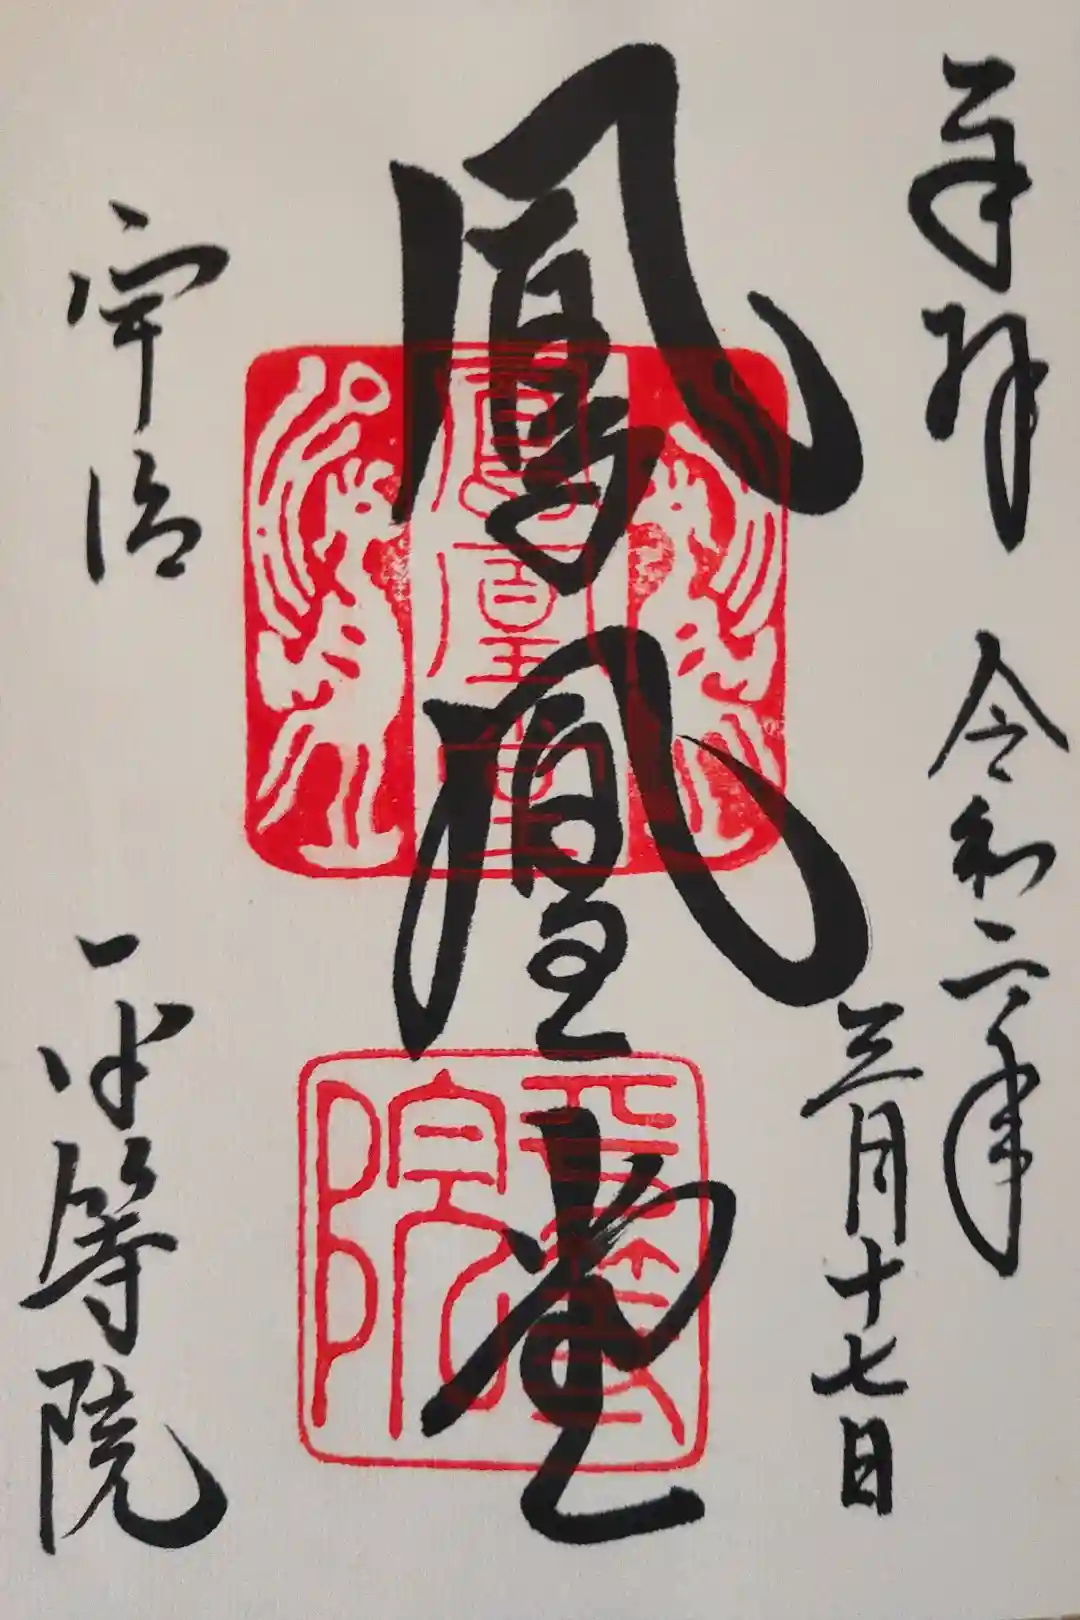 奉拝
令和二年
三月十七日
鳳凰堂
鳳凰堂
平等院
宇治
平等院